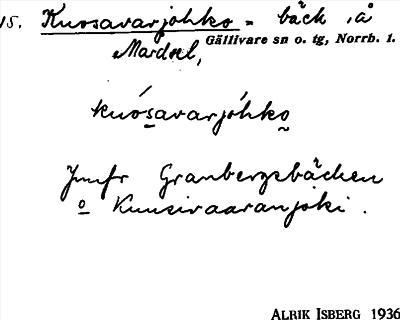 15. Kuosavarjohko = bäck, å
Gällivare sn o. tg, Norrb. l.
Mardsel,
kuósavarjóhko
Jmfr Granbergsbäcken
o Kuusivaaranjoki.
ALRIK ISBERG 1936